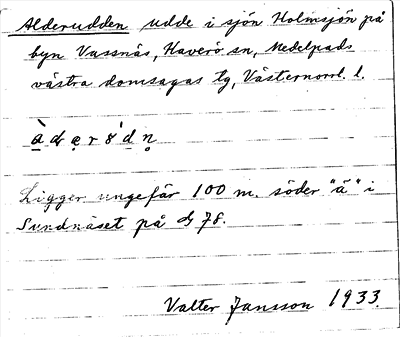 Alderudden udde i sjön Holmsjön på
byn Vassnäs, Haverö sn, Medelpads
västra domsagas tg, Västernorrl. l.
Ligger ungefär 100 m. söder "ä" i
Sundnäset på
Valter Jansson 1933.